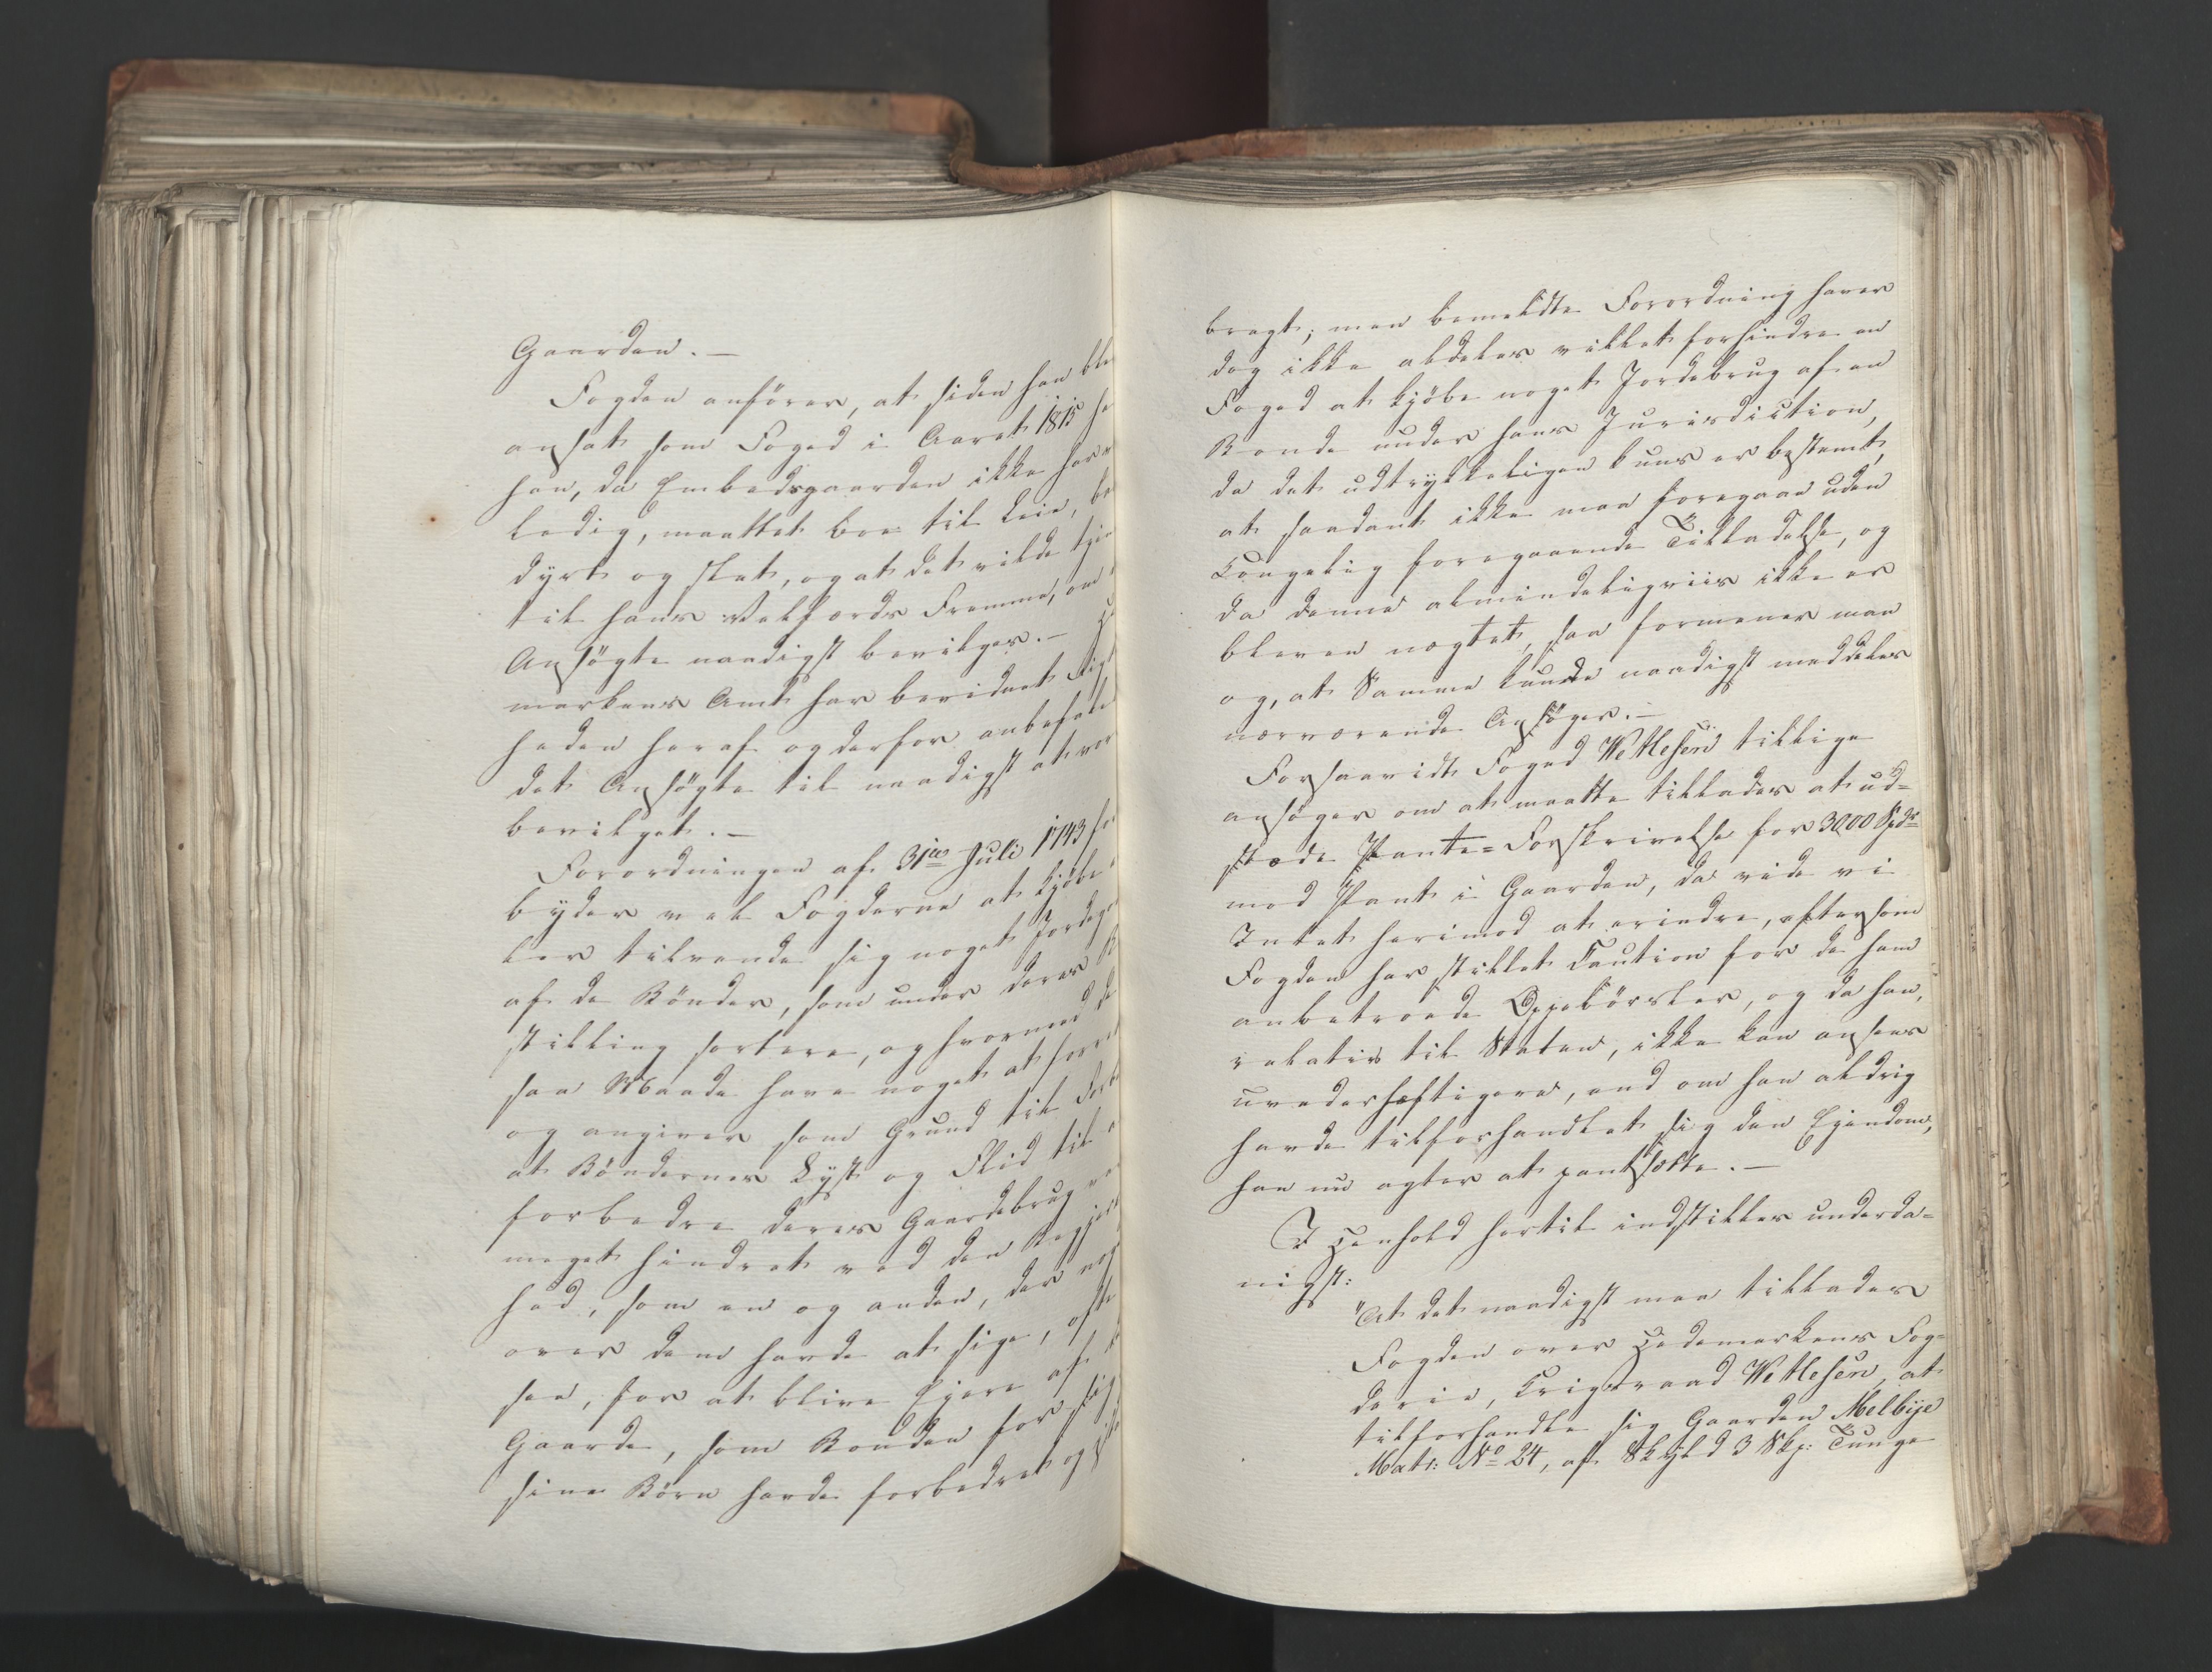 Gaarden. —
Fogden anfører, at siden han ble
ansat som Foged i Aaret 1815 ha
han, da Embedsgaarden ikke har v
ledig, maattet boe til Leie,
dyrt og slet, og at det vilde tjen
til hans Velfærds Fremme, om
Ansøgte naadigst bevilges. —
markens Amt har bevidnet Rigt
heden heraf og derfor anbefalet
det Ansøgte til naadigst at vor
bevilget. —
Forordningen af 31te Juli 1743 for
byder vel Fogderne at kjøbe
ler tilvende sig noget Jordego
af de Bønder, som under deres B
stilling sortere, og hvormed de
saa Maade have noget at forre
og angiver som Grund til Forb
at Bøndernes Lyst og Flid til
forbedre deres Gaardebrug
meget hindret ved den Begjer
hed, som en og anden, der nog
over dem havde at sige, ofte
saa, for at blive Ejere af
Gaarde, som Bonden for sig
sine Børn havde forbedret og
bragt; men bemeldte Forordning haver
dog ikke aldeles villet forhindre en
Foged at kjøbe noget Jordebrug af en
Bonde under hans Jurisdiction,
da det udtrykkeligen kuns er bestemt,
at saadant ikke maa foregaae uden
Kongelig foregaaende Tilladelse, og
da denne almindeligviis ikke er
bleven nægtet, saa formener man
og, at Samme kunde naadigst meddeles
nærværende Ansøger. —
Forsaavidt Foged Wetlesen tillige
ansøger om at maatte tillades at ud=
stæde Pante=Forskrivelse for 3000 Spdr
mod Pant i Gaarden, da vide vi
Intet herimod at erindre, eftersom
Fogden har stillet Caution for de ham
anbetroede Oppebørsler, og da han,
relativ til Staten, ikke kan ansees
uvederhæftigere, end om han aldrig
havde tilforhandlet sig den Ejendom,
han nu agter at pantsætte. —
I Henhold hertil indstilles underda=
nigst:
"At det naadigst maa tillades
Fogden over Hedemarkens Fog=
derie, Krigsraad Wetlesen, at
tilforhandle sig Gaarden Melbye
Matr: No 24, af Skyld 3 Skp: Tunge